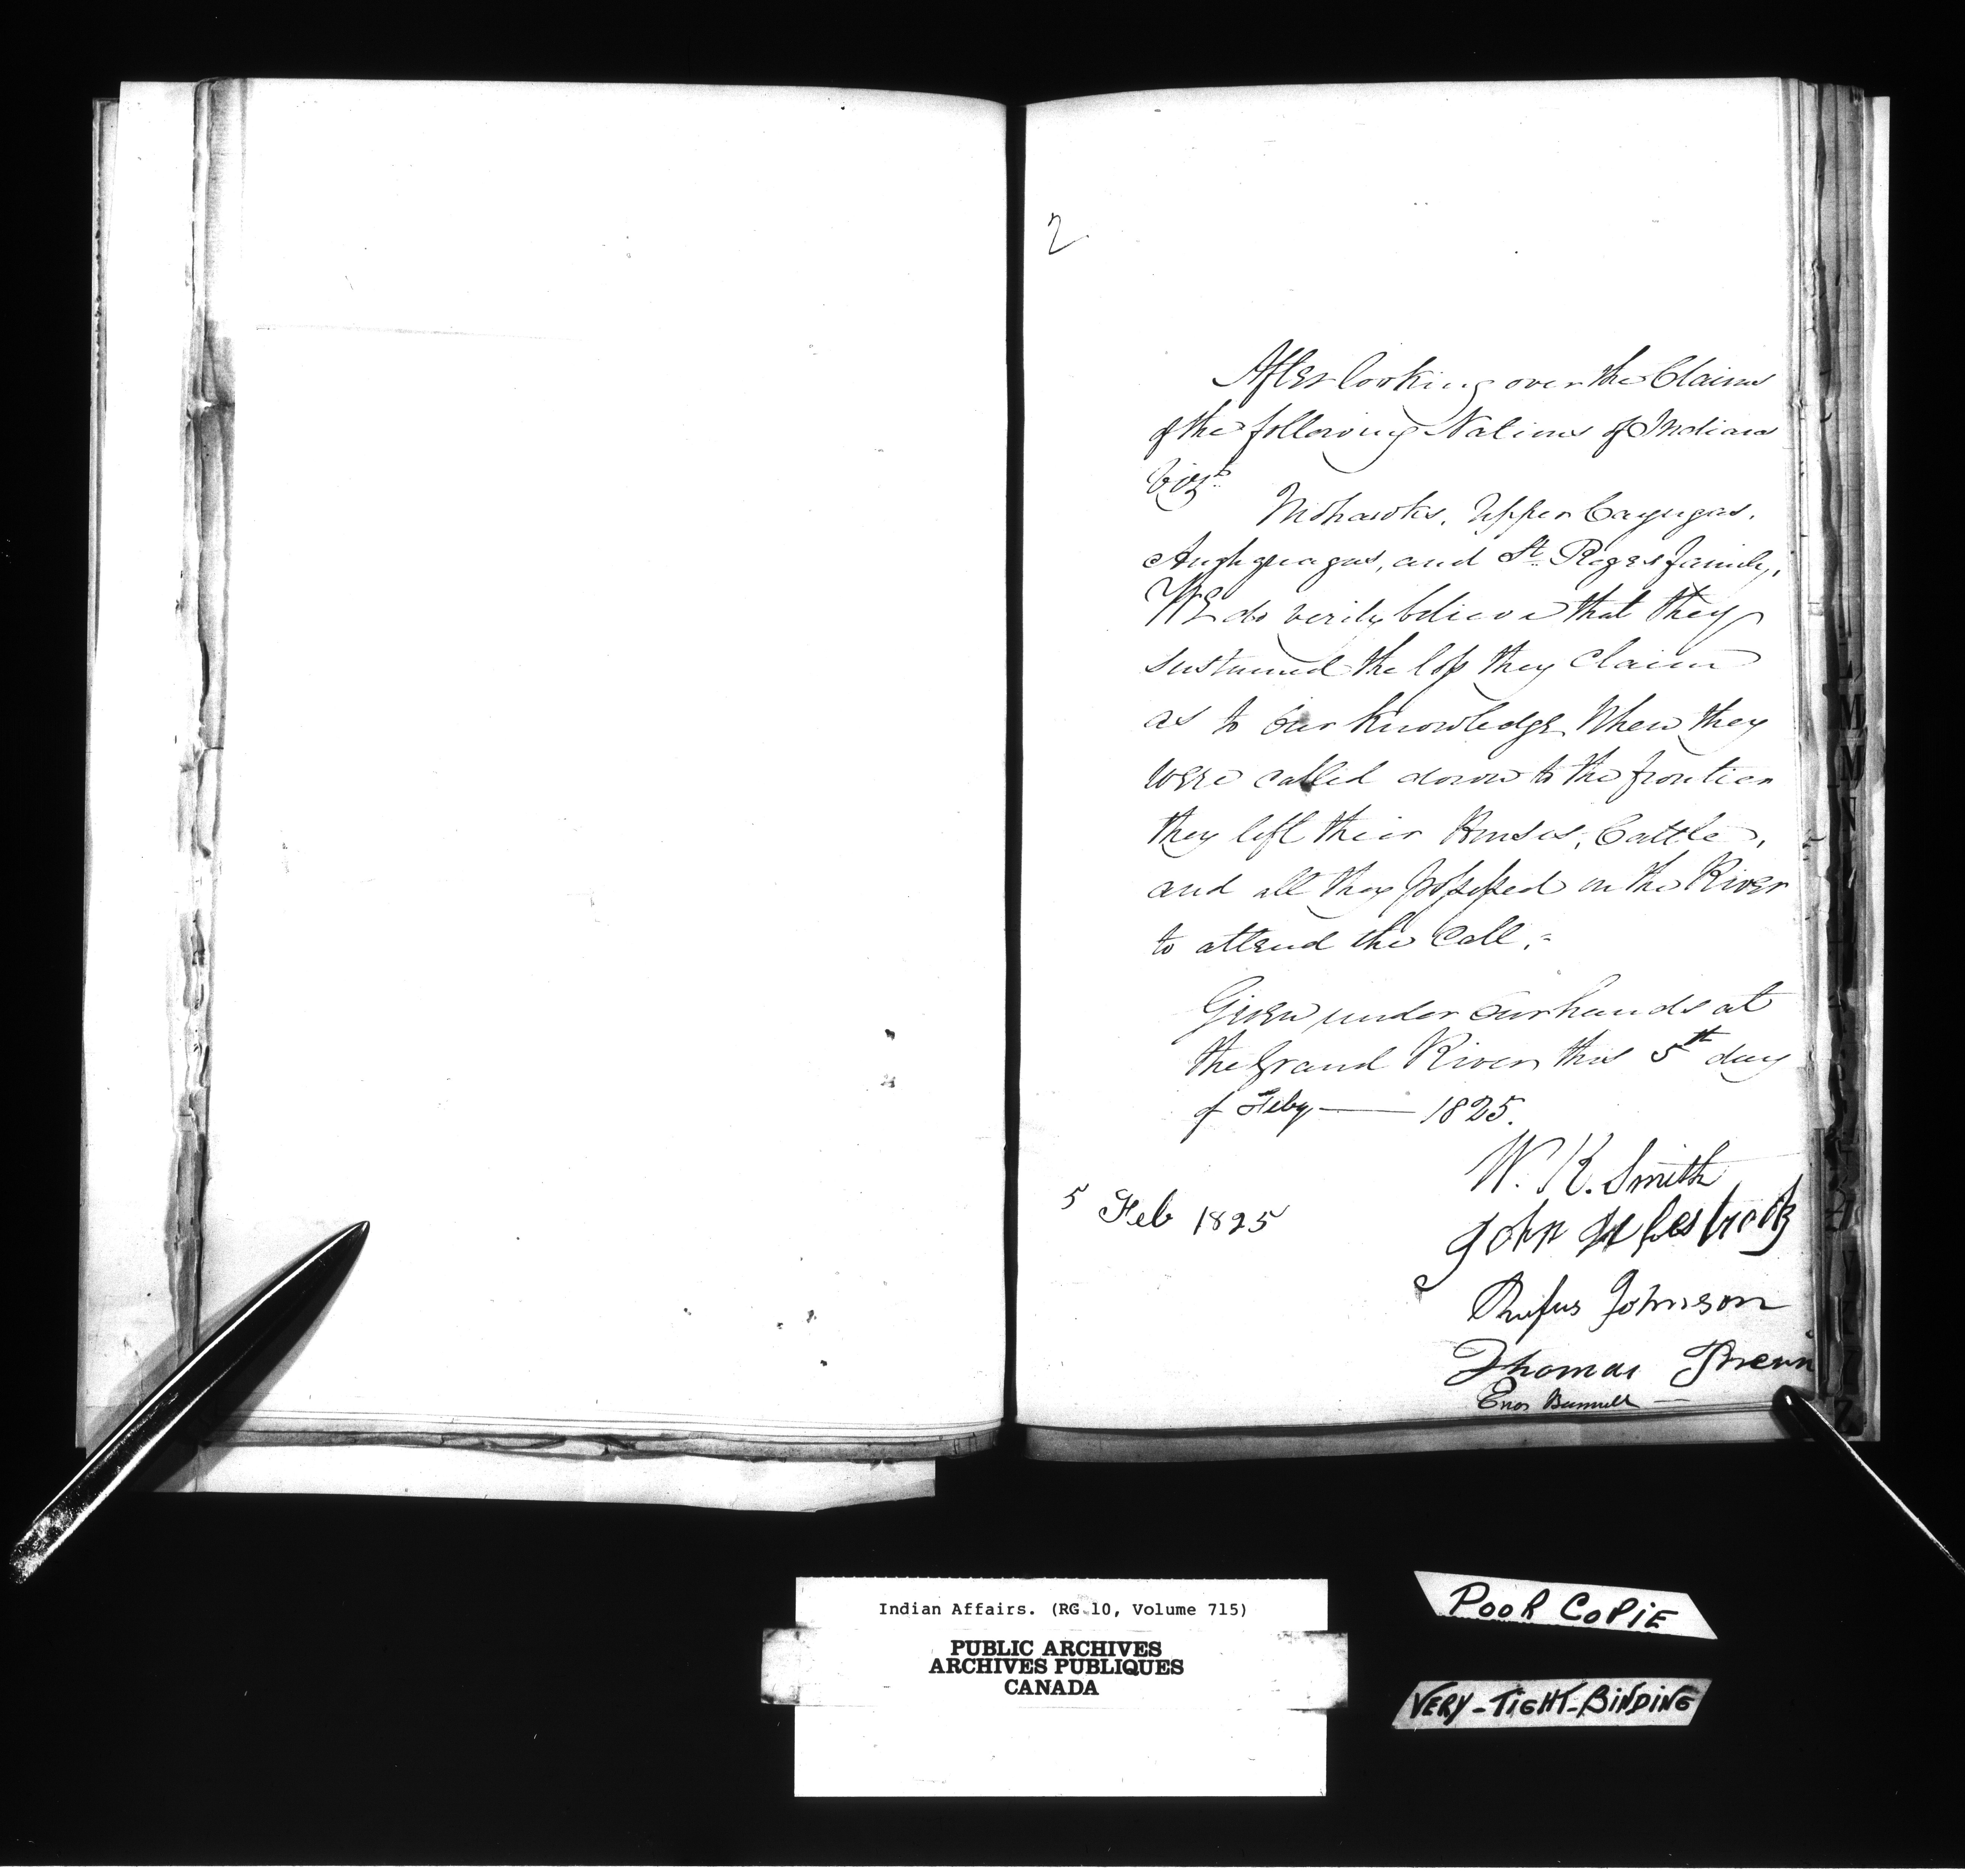 2
After looking over the Claims
of the following Nations of Indians
Vizt
Mohawks, Upper Cayugas,
Aughquagas, and St. Reges family,
WE do verily believe that they
sustained the loss they claim
as to our knowledge When they
were called down to the frontier
they left their Houses, Cattle,
and all they possessed on the River
to attend the Call.=
Given under our hands at
the Grand River this 5th day
of Feby — 1825.
W. K. Smith
5 Feb 1825
John
Rufus Johnson
Thomas
Enos Bunnell —
Indian Affairs. (RG 10, Volume 715)
PUBLIC ARCHIVES
ARCHIVES PUBLIQUES
CANADA
POOR COPIE
VERY-TIGHT-BINDING